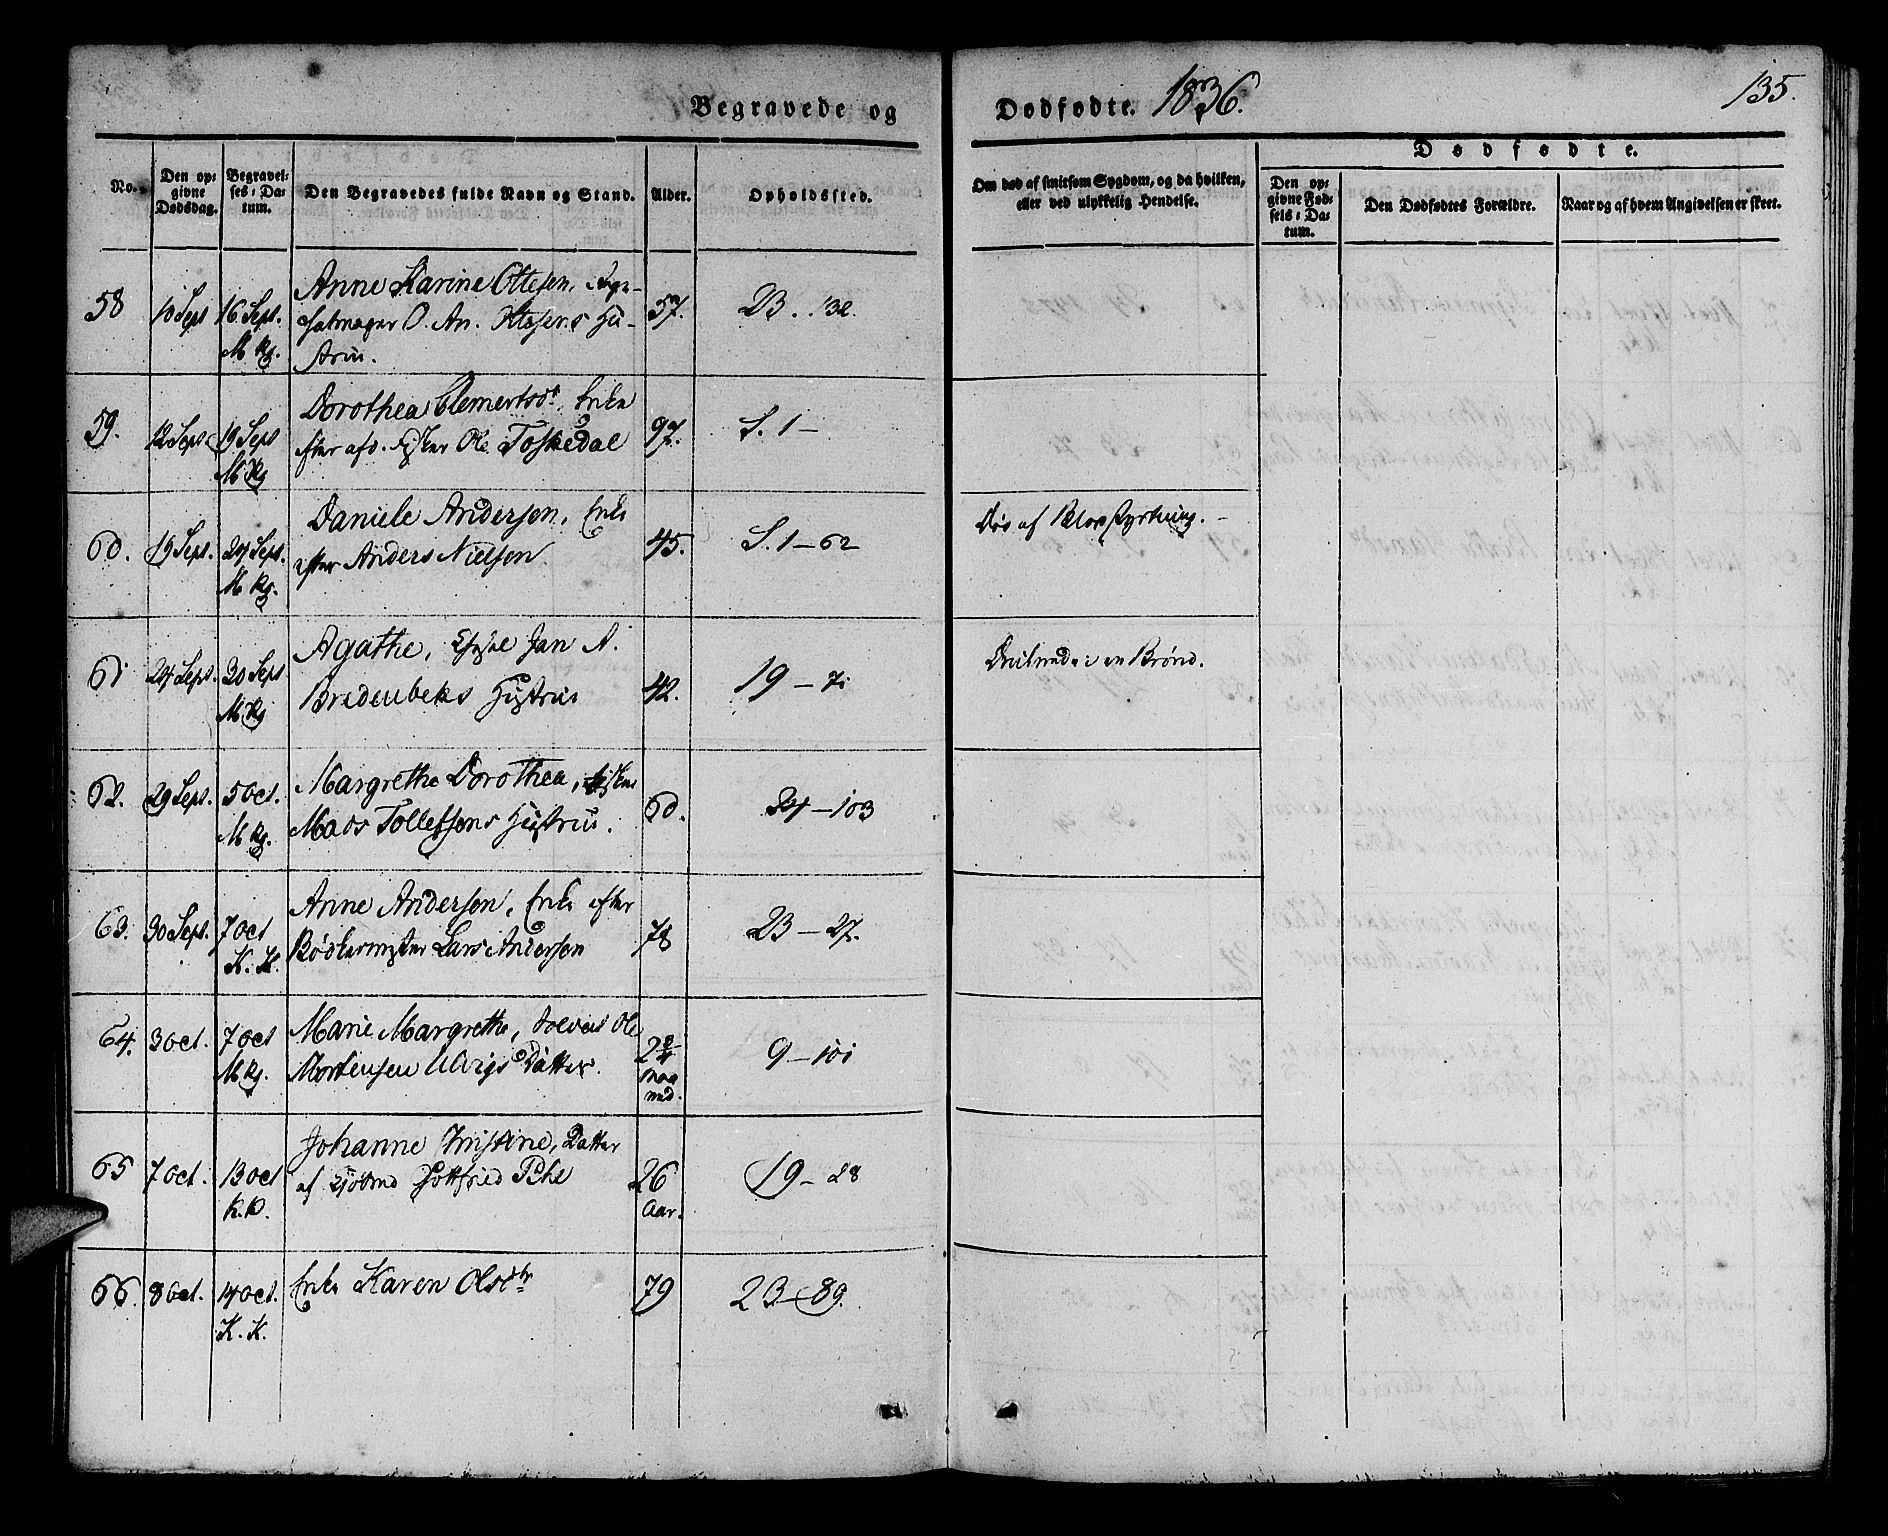 Begravede og
Dødfødte. 1836.
135.
No.
Den op=
givne
Dødsdag.
Begravel=
ses=Da=
tum.
Den Begravedes fulde Navn og Stand.
Alder.
Opholdssted.
Om død af smitsom Sygdom, og da hvilken,
eller ved ulykkelig Hendelse.
Dødfødte.
Den op=
givne Fød=
sels=Da=
tum.
Den Dødfødtes Forældre.
Naar og af hvem Angivelsen er skeet.
58
10 Sept
16 Sept.
M Kg.
Anne Karine Ottesen,
O. An. Ottesens Hu-
strue.
57.
23. 132.
59.
12 Sept
19 Sept
M Kg
Dorothea Clemertsdr, Enke
efter afd. Fisker Ole Toskedal
97.
S. 1 –
60.
19 Sept.
24 Sept.
M Kg.
Daniele Andersen, Enke
efter Anders Nielsen
45.
S. 1 – 62
Døv af Blodstyrtning. –
61
24 Sept.
30 Sept
M Kg
Agathe, Jan A.
Bredenbeks Hustrue
42.
19 – 71
Druknede i en Brønd.
62.
29 Sept.
5 Oct.
M Kg.
Margrethe Dorothea,
Mads Tollefsens Hustrue.
60.
24 – 103
63.
30 Sept.
7 Oct
K. K.
Anne Andersen, Enke efter
Bødkermester Lars Andersen
78
23 – 27.
64.
3 Oct.
7 Oct
M Kg.
Marie Margrethe, Ole
Mortensen Datter.
2 3/4
maa
ned.
9 – 101
65
7 Oct.
13 Oct
K. K.
Johanne Kristine, Datter
af Gottfried Pihl
26
Aar.
19 – 28
66.
8 Oct.
14 Oct.
K. K.
Enke Karen Olsdtr
79
23 – 89.